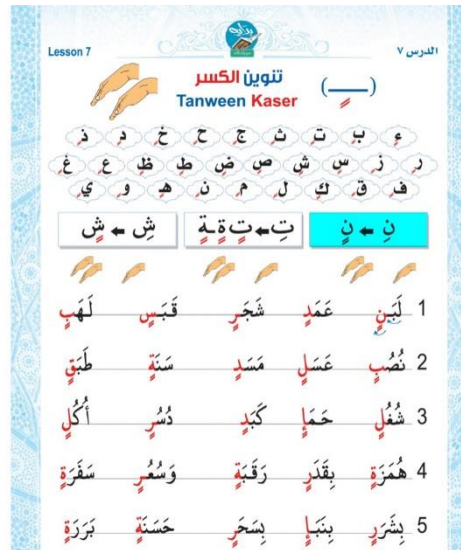 Lesson 7 الدرس ٧
تنوين الكسر ( ــٍـ )
Tanween Kaser
ءٍ بٍ تٍ ثٍ جٍ حٍ خٍ دٍ ذٍ
رٍ زٍ سٍ شٍ صٍ ضٍ طٍ ظٍ عٍ غٍ
فٍ قٍ كٍ لٍ مٍ نٍ هٍ وٍ يٍ
نِ ← نٍ تِ ← تٍ ةٍ ـةٍ شِ ← شٍ
1 لَبَنٍ عَمَدٍ شَجَرٍ قَبَسٍ لَهَبٍ
2 نُصُبٍ عَسَلٍ مَسَدٍ سَنَةٍ طَبَقٍ
3 شُغُلٍ حَمَإٍ كَبَدٍ دُسُرٍ أُكُلٍ
4 هُمَزَةٍ بِقَدَرٍ رَقَبَةٍ وَسُعُرٍ سَفَرَةٍ
5 بِشَرَرٍ بِنَبَإٍ بِسَحَرٍ حَسَنَةٍ بَرَرَةٍ